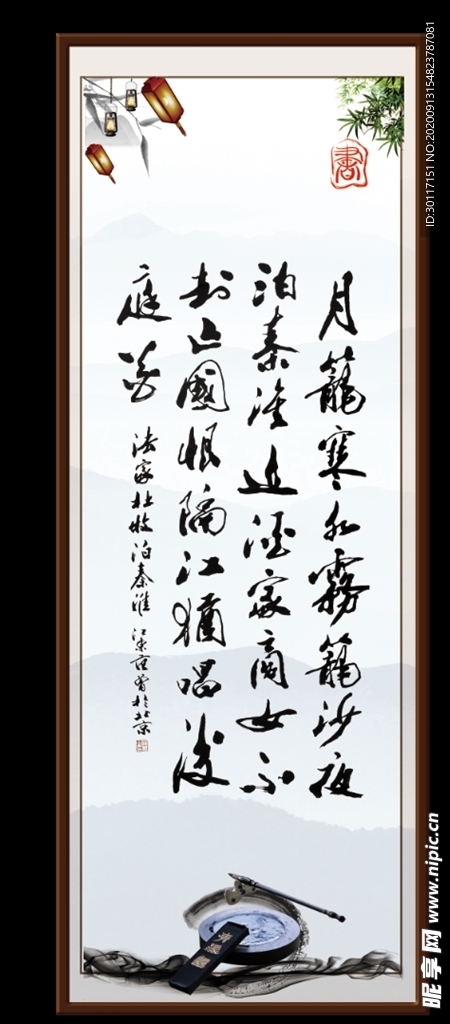 月籠寒水霧籠沙夜
泊秦淮近酒家商女不
知亡國恨隔江猶唱後
庭花
法家杜牧泊秦淮 江東范曾於北京
書
ID:30117151 NO:20200913154823787081
昵享网 www.nipic.cn